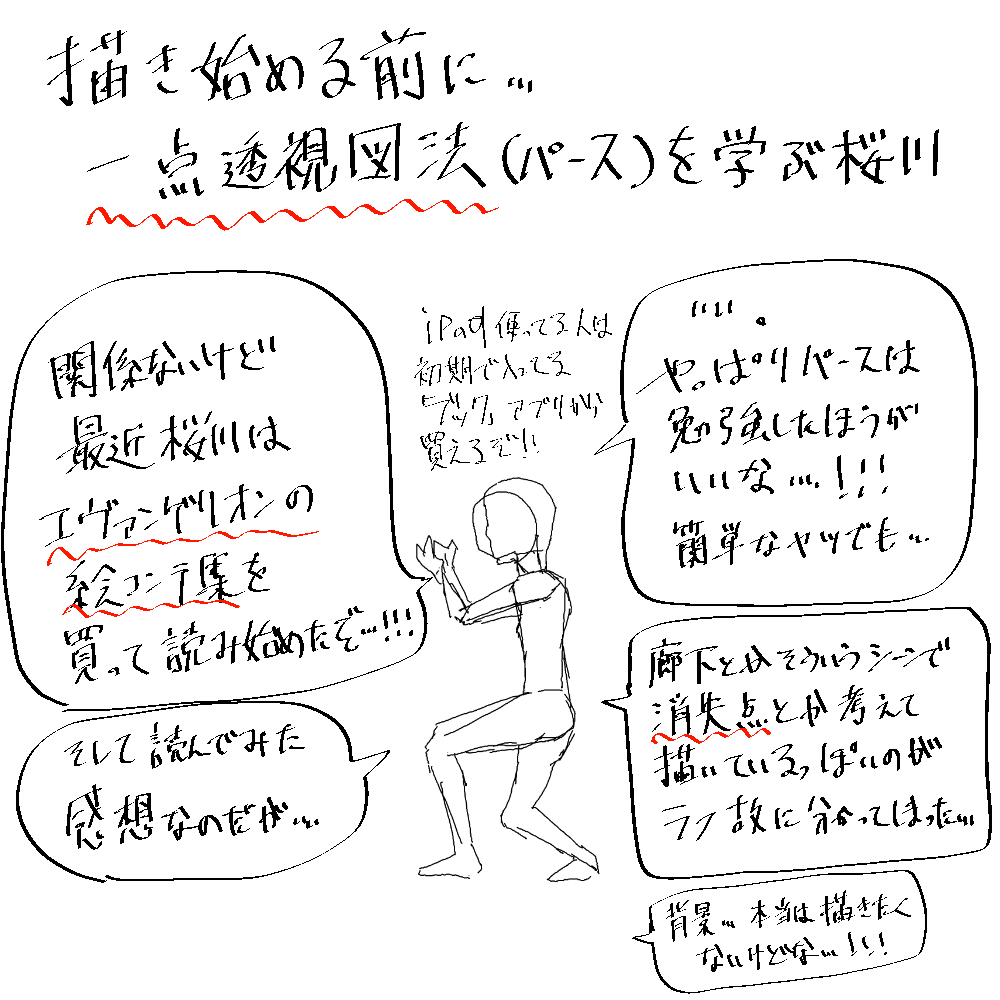 描き始める前に…
一点透視図法(パース)を学ぶ桜川
…。
やっぱりパースは
勉強したほうが
いいな…!!!
簡単なヤツでも…
iPad使ってる人は
初期で入ってる
「ブック」アプリから
買えるぞ!!
関係ないけど
最近桜川は
エヴァンゲリオンの
絵コンテ集を
買って読み始めたぞ…!!!
廊下とかそういうシーンで
消失点とか考えて
描いているっぽいのが
ラフ故に分かってしまった…
そして読んでみた
感想なのだが…
背景…本当は描きたく
ないけどな…!!!